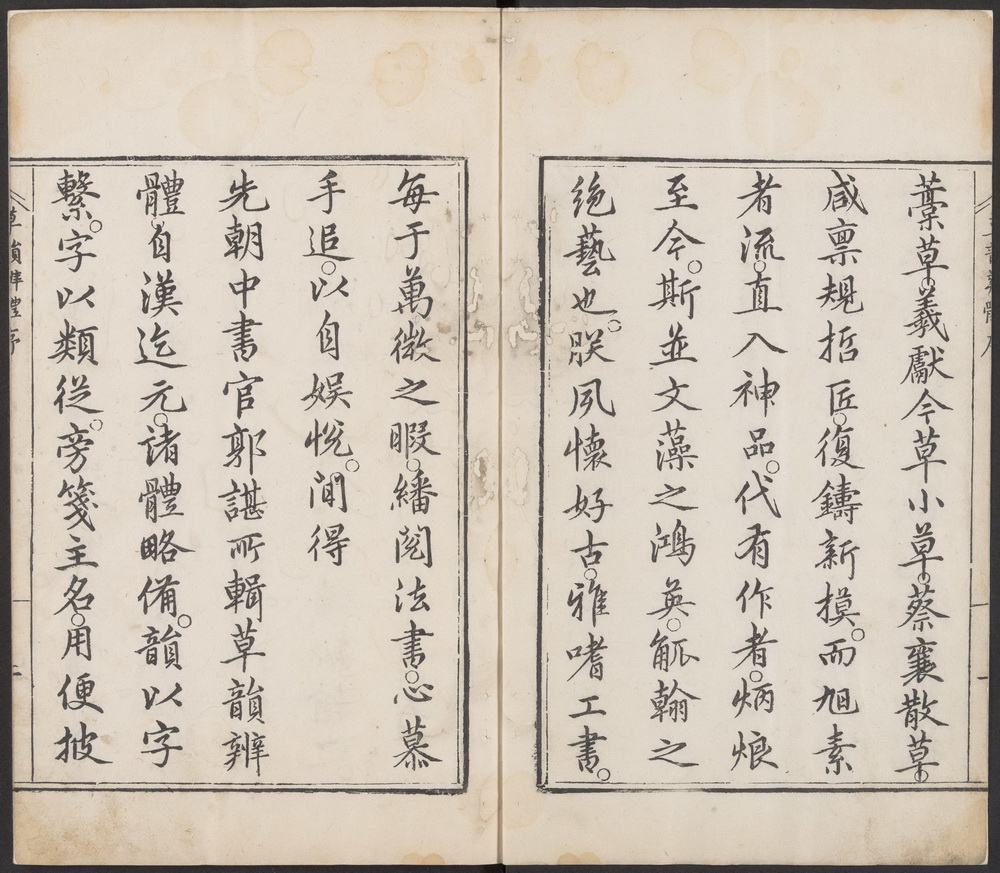 藁草。羲獻今草小草。蔡襄散草。
咸禀規哲匠。復鑄新摸。而旭素
者流。直入神品。代有作者。炳烺
至今。斯並文藻之鴻英。觚翰之
絶藝也。朕夙懷好古。雅嗜工書。
每于萬微之暇。繙閱法書。心慕
手追。以自娯悅。間得
先朝中書官郭諶所輯草韻辨
體。自漢迄元。諸體略備。韻以字
繫。字以類從。旁箋主名。用便披
草韻辨體序
二